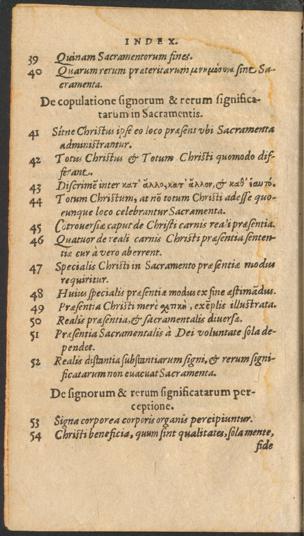 INDEX.
39 Quinam Sacramentorum fines.
40 Quarum rerum præteritarum μνημόσυνα sint Sa-
cramenta.
De copulatione signorum & rerum significa-
tarum in Sacramentis.
41 Sitne Christus ipse eo loco præsens vbi Sacramenta
administrantur.
42 Totus Christus & Totum Christi quomodo dif-
ferant.
43 Discrimē inter κατ' ἄλλο, κατ' ἄλλον, & καθ' ἑαυτό.
44 Totum Christum, at nō totum Christi adesse quo-
cunque loco celebrantur Sacramenta.
45 Cōtrouersiæ caput de Christi carnis reali præsentia.
46 Quatuor de reali carnis Christi præsentia senten-
tiæ cur à vero aberrent.
47 Specialis Christi in Sacramento præsentiæ modus
requiritur.
48 Huius specialis præsentiæ modus ex fine æstimādus.
49 Præsentia Christi merè σχετικὴ, exēplis illustrata.
50 Realis præsentia, & sacramentalis diuersa.
51 Præsentia Sacramentalis à Dei voluntate sola de-
pendet.
52 Realis distantia substantiarum signi, & rerum signi-
ficatarum non euacuat Sacramenta.
De signorum & rerum significatarum per-
ceptione.
53 Signa corporea corporis organis percipiuntur.
54 Christi beneficia, quum sint qualitates, sola mente,
fide